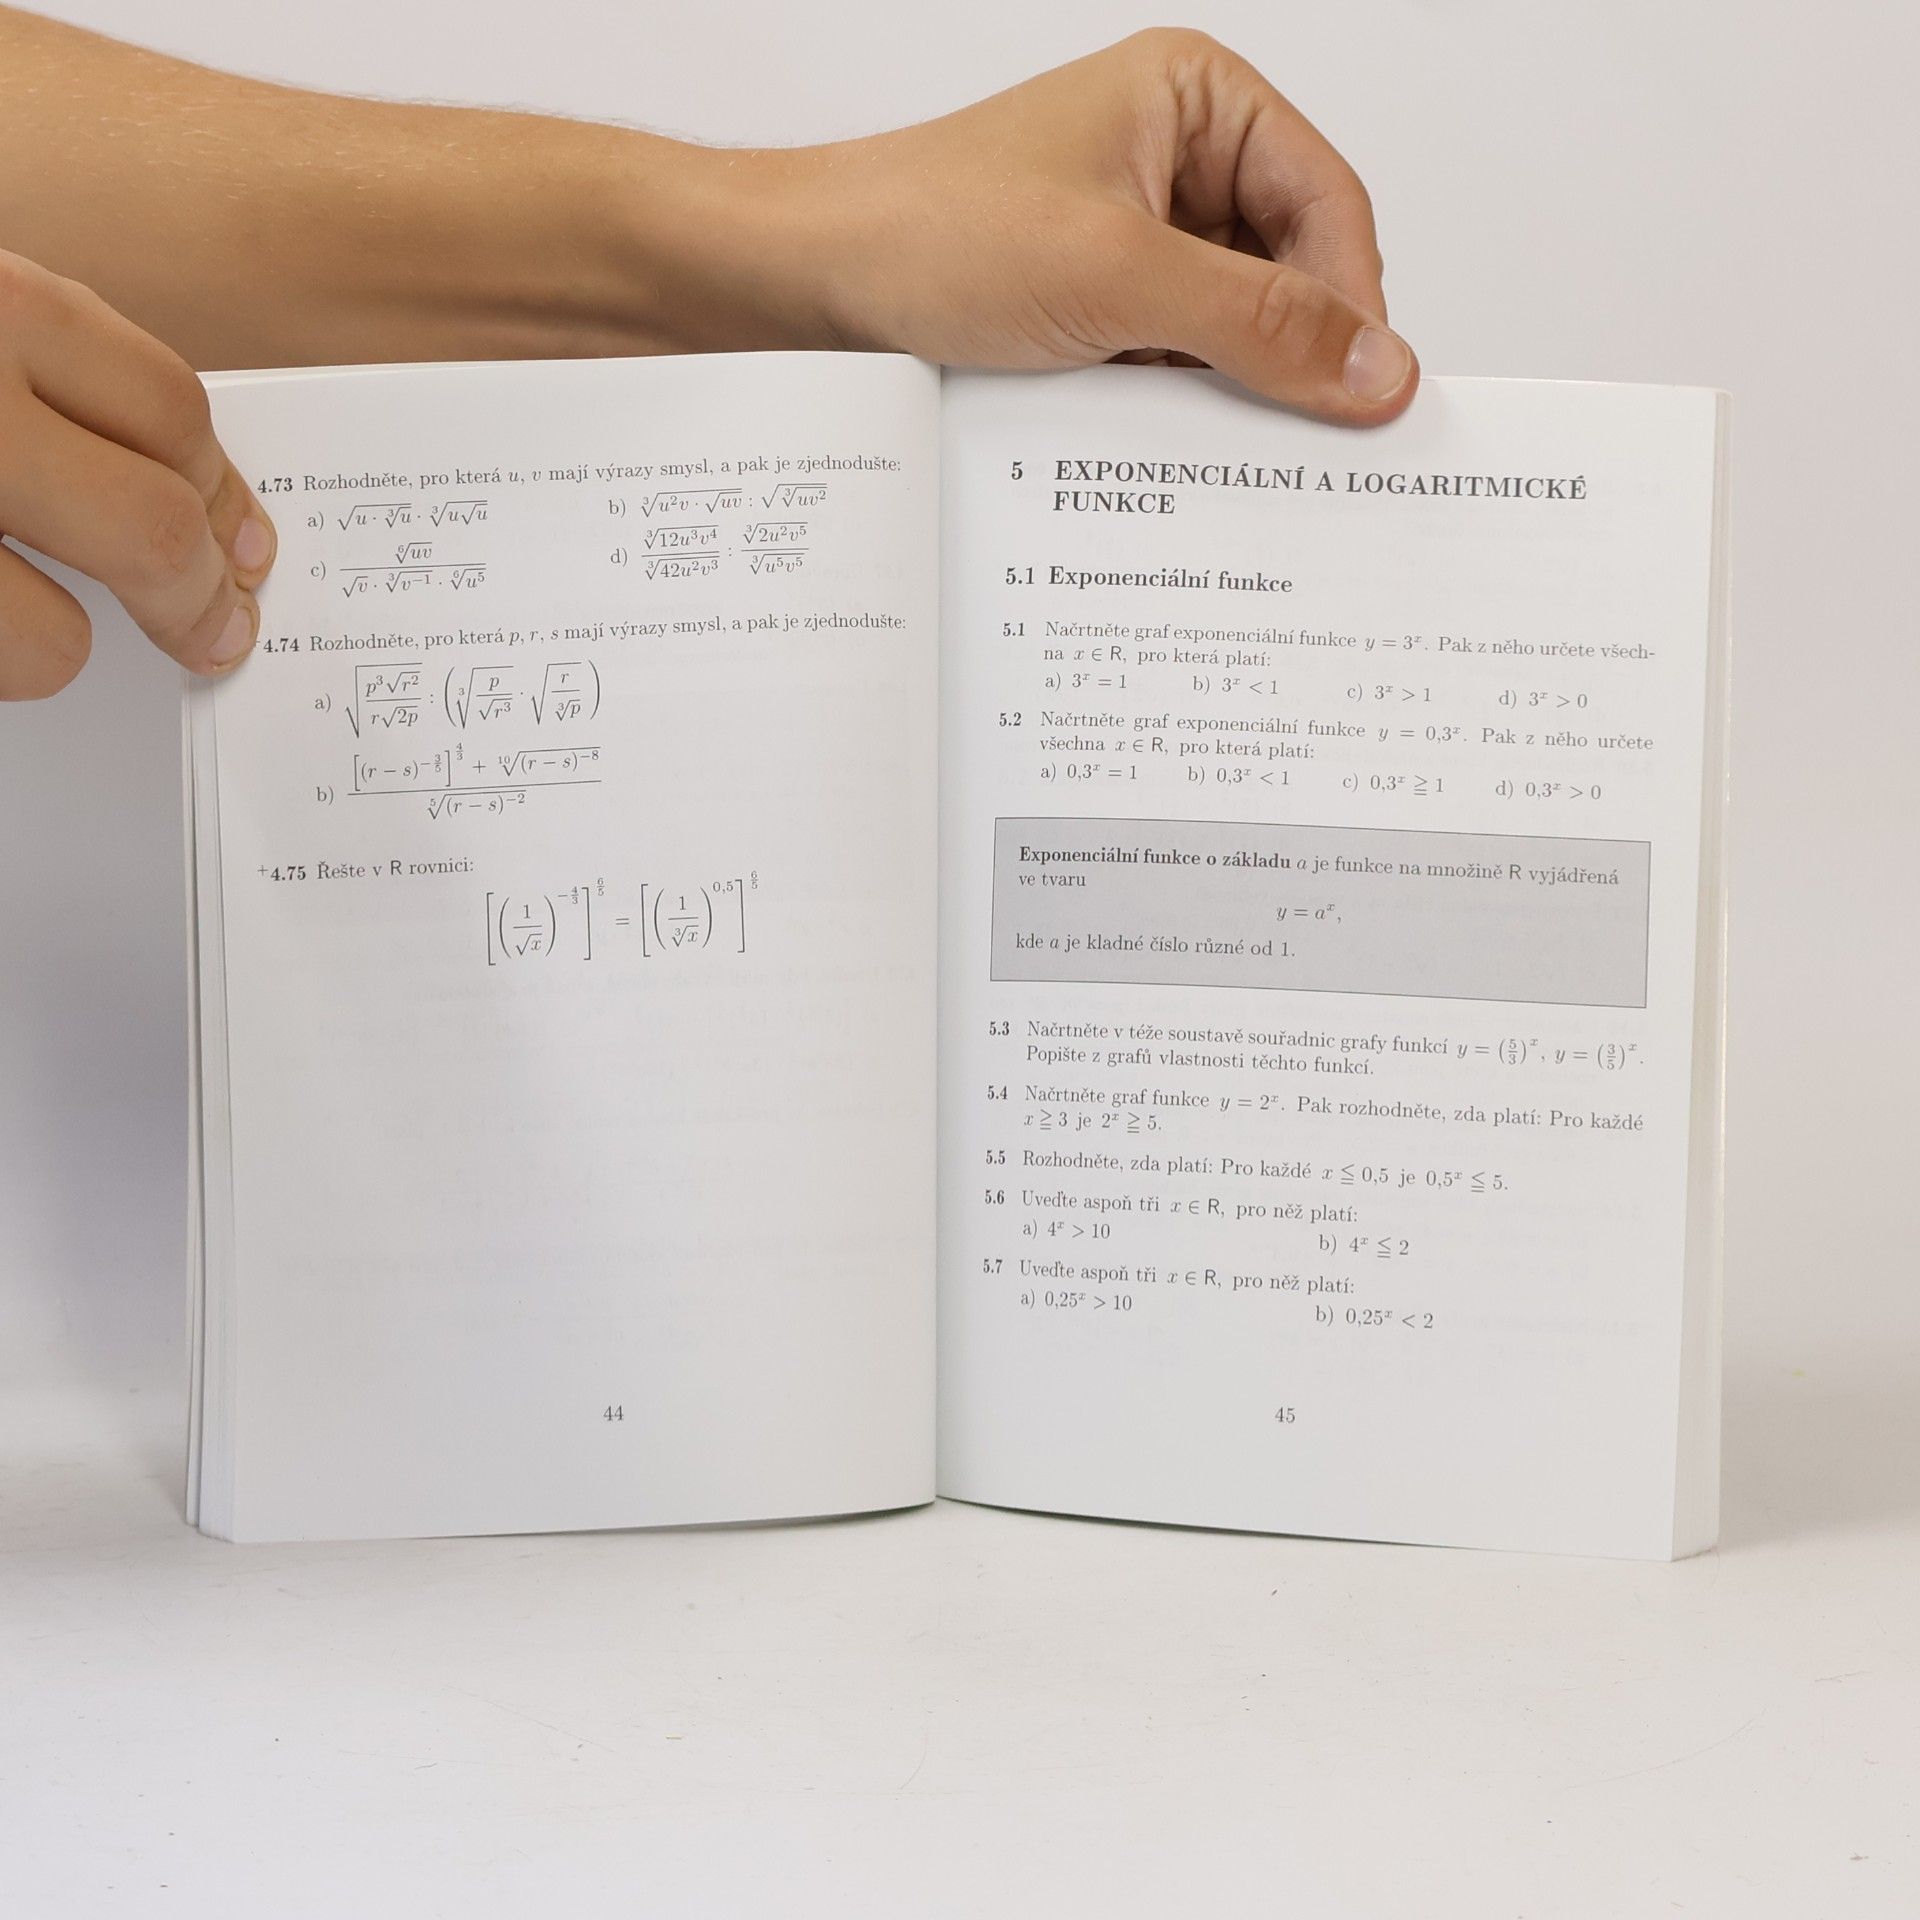 4.73 Rozhodněte, pro která u, v mají výrazy smysl, a pak je zjednodušte:
a) √(u · ∛u) · ∛(u√u) b) ∛(u²v · √(uv)) : √(∛(uv²))
c) ⁶√(uv) / (√v · ∛(v⁻¹) · ⁶√(u⁵)) d) ∛(12u³v⁴) / ∛(42u²v³) : ∛(2u²v⁵) / ∛(u⁵v⁵)
+4.74 Rozhodněte, pro která p, r, s mají výrazy smysl, a pak je zjednodušte:
a) √(p³√(r²) / (r√(2p))) : (∛(p / √(r³)) · √(r / ∛p))
b) ([(r − s)^(−3/5)]^(4/3) + ¹⁰√((r − s)⁻⁸)) / ⁵√((r − s)⁻²)
+4.75 Řešte v R rovnici:
[(1/√x)^(−4/3)]^(6/5) = [(1/∛x)^(0,5)]^(6/5)
44
5 EXPONENCIÁLNÍ A LOGARITMICKÉ
FUNKCE
5.1 Exponenciální funkce
5.1 Načrtněte graf exponenciální funkce y = 3ˣ. Pak z něho určete všech-
na x ∈ R, pro která platí:
a) 3ˣ = 1 b) 3ˣ < 1 c) 3ˣ > 1 d) 3ˣ > 0
5.2 Načrtněte graf exponenciální funkce y = 0,3ˣ. Pak z něho určete
všechna x ∈ R, pro která platí:
a) 0,3ˣ = 1 b) 0,3ˣ < 1 c) 0,3ˣ ≧ 1 d) 0,3ˣ > 0
Exponenciální funkce o základu a je funkce na množině R vyjádřená
ve tvaru
y = aˣ,
kde a je kladné číslo různé od 1.
5.3 Načrtněte v téže soustavě souřadnic grafy funkcí y = (5/3)ˣ, y = (3/5)ˣ.
Popište z grafů vlastnosti těchto funkcí.
5.4 Načrtněte graf funkce y = 2ˣ. Pak rozhodněte, zda platí: Pro každé
x ≧ 3 je 2ˣ ≧ 5.
5.5 Rozhodněte, zda platí: Pro každé x ≦ 0,5 je 0,5ˣ ≦ 5.
5.6 Uveďte aspoň tři x ∈ R, pro něž platí:
a) 4ˣ > 10 b) 4ˣ ≦ 2
5.7 Uveďte aspoň tři x ∈ R, pro něž platí:
a) 0,25ˣ > 10 b) 0,25ˣ < 2
45